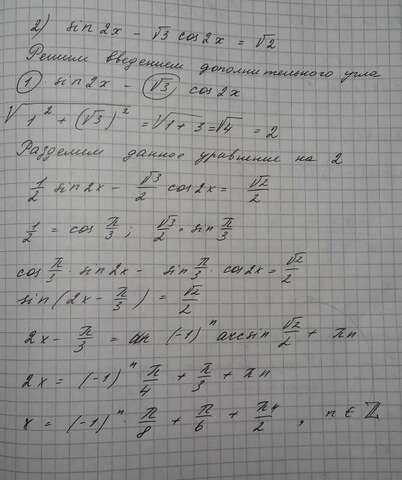 2) sin 2x - √3 cos 2x = √2
Решим введением дополнительного угла
① sin 2x - (√3) cos 2x
√(1² + (√3)²) = √(1+3) = √4 = 2
Разделим данное уравнение на 2
1/2 sin 2x - √3/2 cos 2x = √2/2
1/2 = cos π/3 ; √3/2 = sin π/3
cos π/3 · sin 2x - sin π/3 · cos 2x = √2/2
sin (2x - π/3) = √2/2
2x - π/3 = (-1)ⁿ arcsin √2/2 + πn
2x = (-1)ⁿ π/4 + π/3 + πn
x = (-1)ⁿ · π/8 + π/6 + πn/2 , n ∈ ℤ